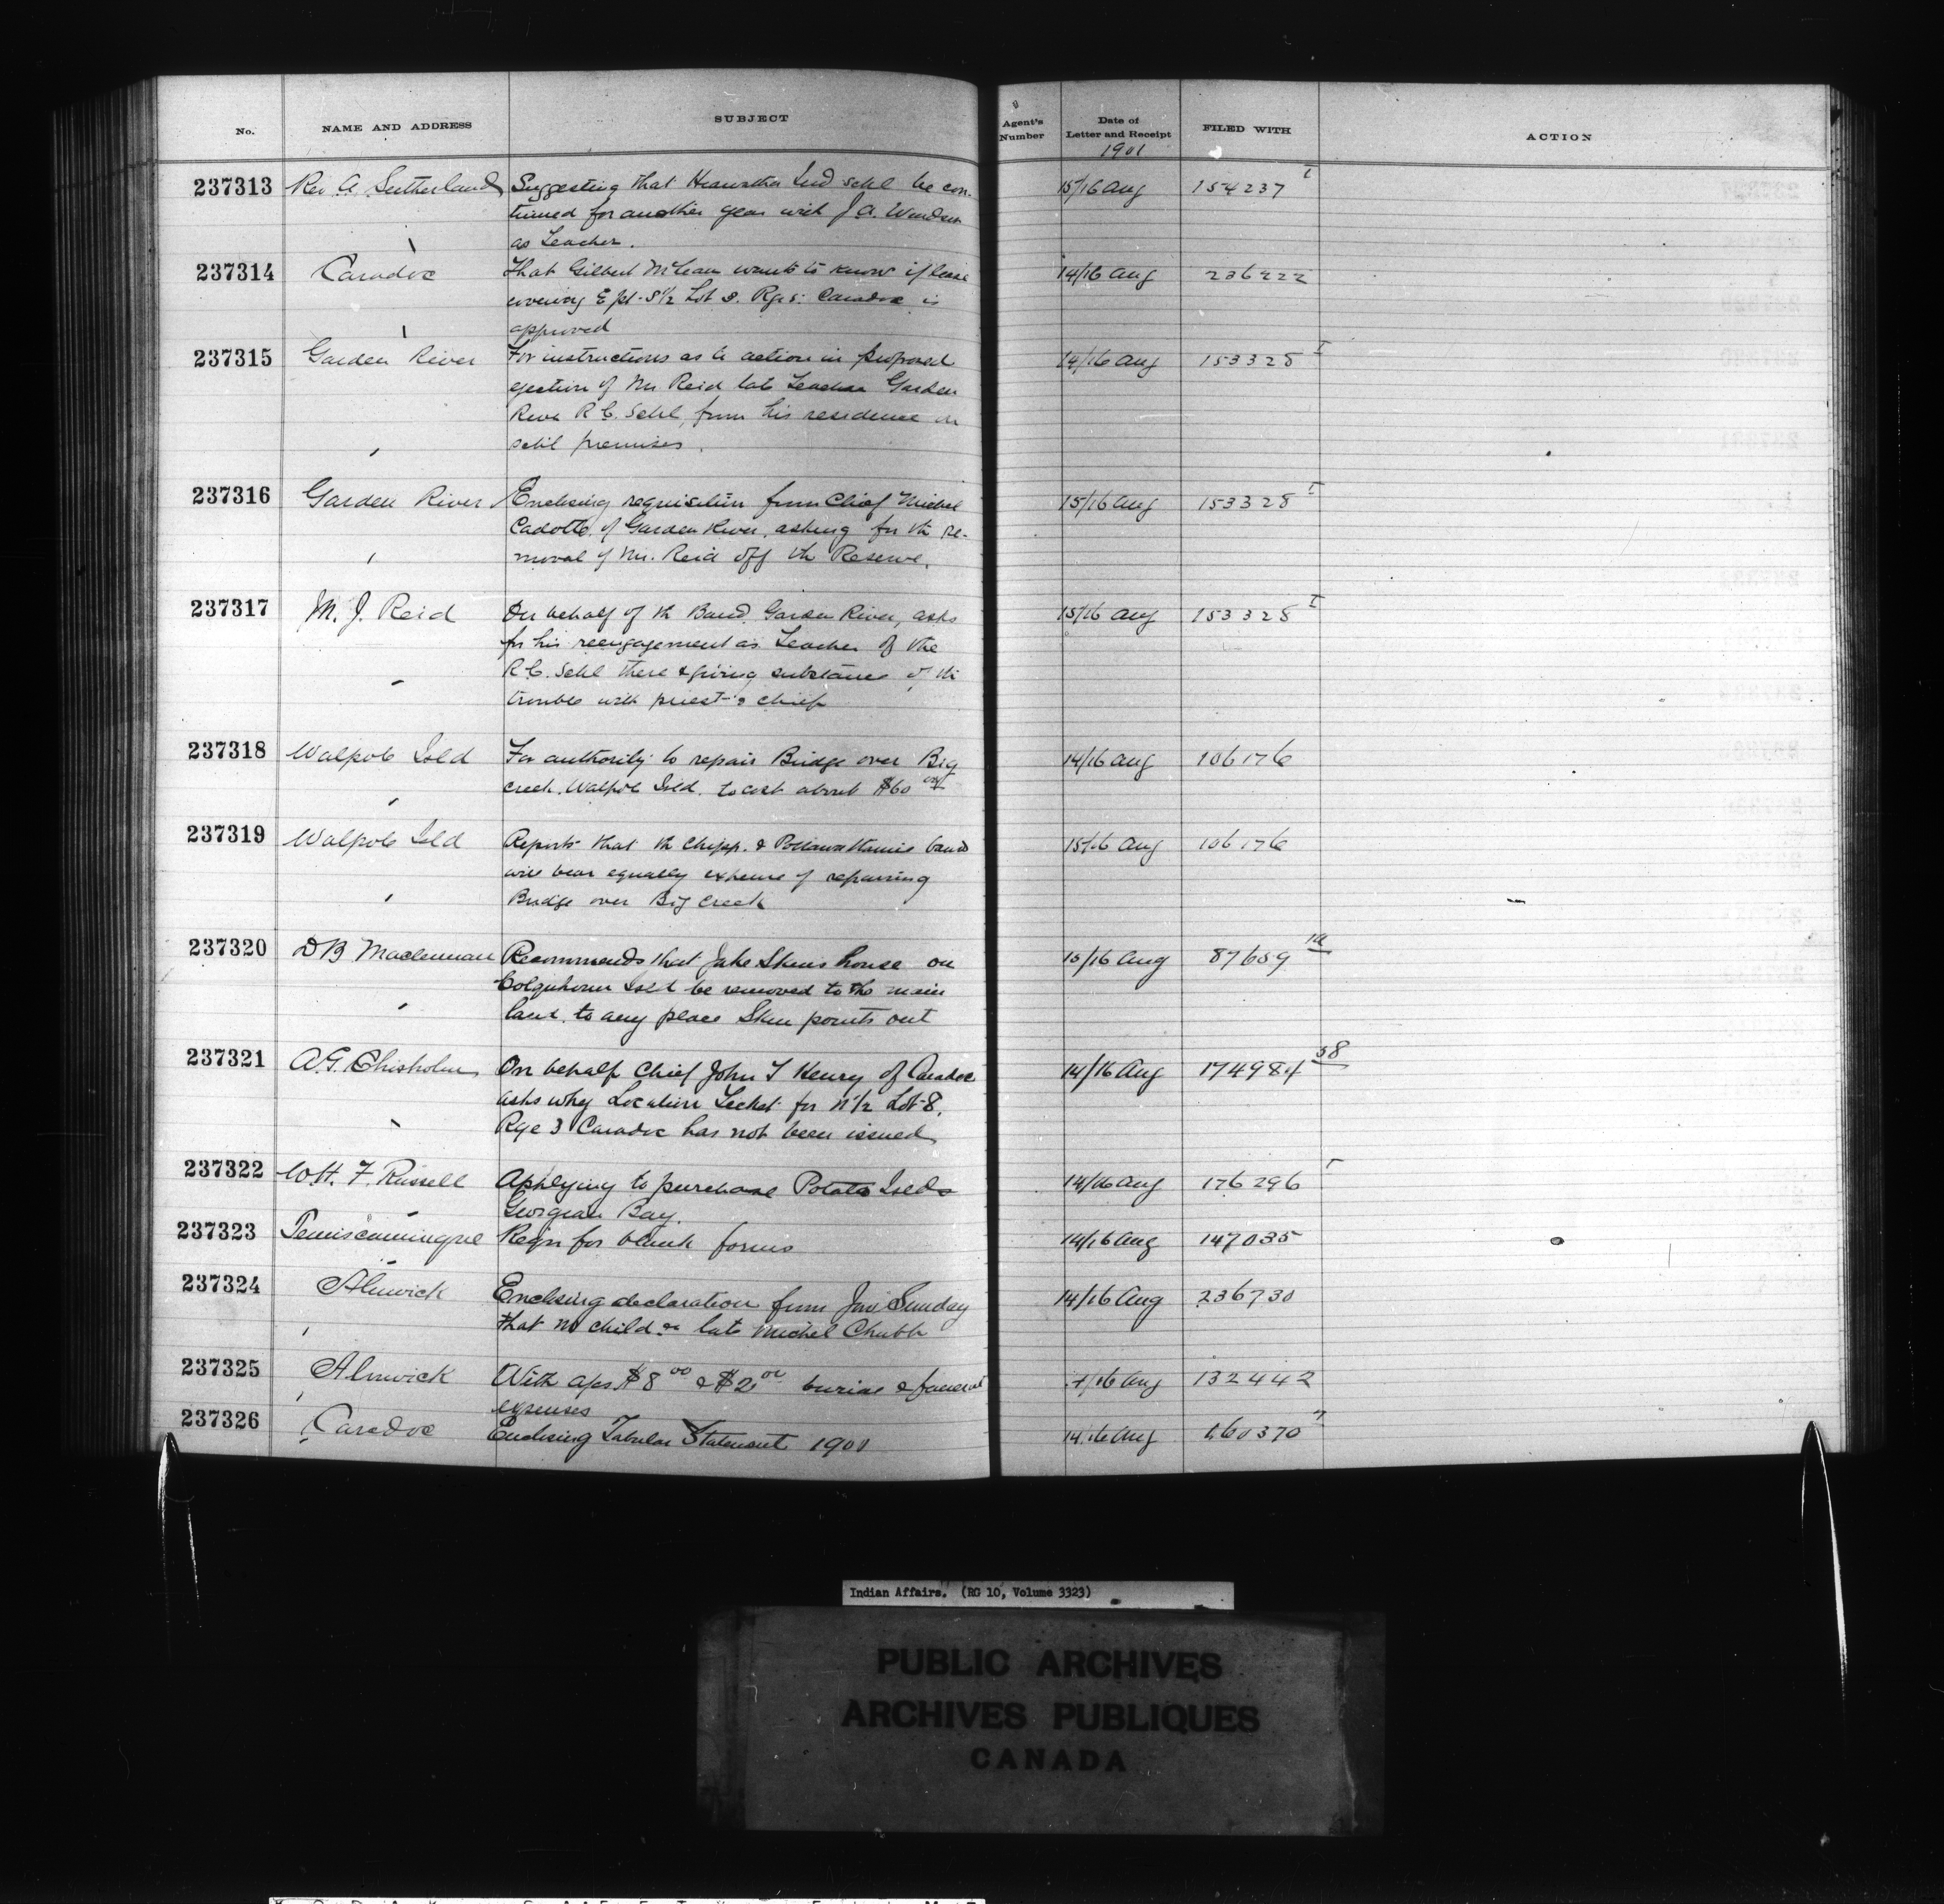 No. NAME AND ADDRESS SUBJECT Agent's Number Date of Letter and Receipt FILED WITH ACTION
1901
237313 Rev. A. Sutherland Suggesting that Hiawatha Ind Schl be con- 15/16 Aug 154237 I
tinued for another year with J. A. Windsor
as Teacher.
237314 Caradoc That Gilbert McLean wants to know if lease 14/16 Aug 236222
covering E pt. S 1/2 Lot 8. Rge 5. Caradoc is
approved
237315 Garden River For instructions as to action in proposed 14/16 Aug 153328 I
ejection of Mr Reid late Teacher Garden
River R.C. Schl, from his residence on
schl premises.
237316 Garden River Enclosing requisition from Chief Michel 15/16 Aug 153328 I
Cadotte of Garden River, asking for th re-
moval of Mr. Reid off th Reserve.
237317 M. J. Reid On behalf of th Band, Garden River, asks 15/16 Aug 153328 I
for his reengagement as Teacher of the
R.C. Schl there & giving substance of th
trouble with priest & chief
237318 Walpole Isld For authority to repair Bridge over Big 14/16 Aug 106176
creek, Walpole Isld. to cost about $60
237319 Walpole Isld Reports that th Chipp. & Pottawattamie bands 15/16 Aug 106176
will bear equally expense of repairing
Bridge over Big Creek
237320 D B Maclennan Recommends that Jake Skins house on 15/16 Aug 87659
Colquhoun Isld be removed to the main
land. to any place Skin points out
237321 A.G. Chisholm On behalf Chief John T Henry of Caradoc 14/16 Aug 174984 38
asks why Location Ticket for N 1/2 Lot 8.
Rge 3 Caradoc has not been issued
237322 W.H. F. Russell Applying to purchase Potato Islds 14/16 Aug 176296
Georgian Bay.
237323 Temiscamingue Reqn for blank forms 14/16 Aug 147035
237324 Alnwick Enclosing declaration from Jno Sunday 14/16 Aug 236730
that no child of late Michel Chubb
237325 Alnwick With a/cs $8 00 & $2 00 burial & funeral 14/16 Aug 132442
expenses
237326 Caradoc Enclosing Tabular Statement 1901 14/16 Aug 160370
Indian Affairs. (RG 10, Volume 3323)
PUBLIC ARCHIVES
ARCHIVES PUBLIQUES
CANADA